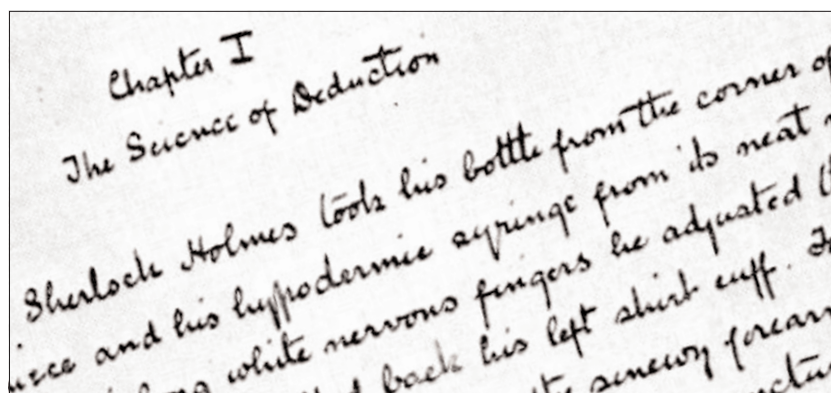 Chapter I
The Science of Deduction
Sherlock Holmes took his bottle from the corner of
and his hypodermic syringe from its neat
white nervous fingers he adjusted
back his left shirt cuff.
the sinewy